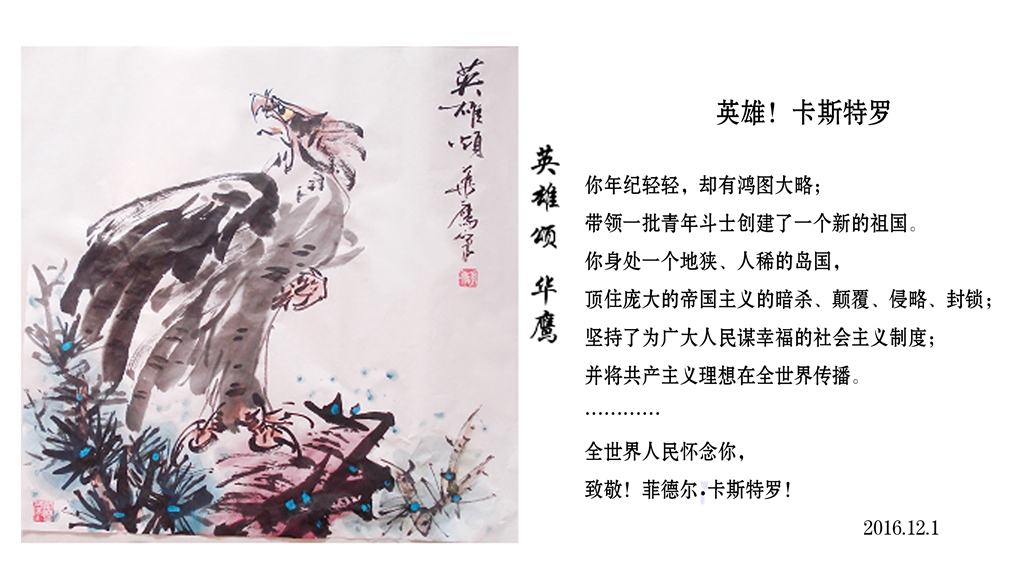 英雄颂 华鹰笔
英雄颂 华鹰
英雄！卡斯特罗
你年纪轻轻，却有鸿图大略；
带领一批青年斗士创建了一个新的祖国。
你身处一个地狭、人稀的岛国，
顶住庞大的帝国主义的暗杀、颠覆、侵略、封锁；
坚持了为广大人民谋幸福的社会主义制度；
并将共产主义理想在全世界传播。
…………
全世界人民怀念你，
致敬！菲德尔•卡斯特罗！
2016.12.1